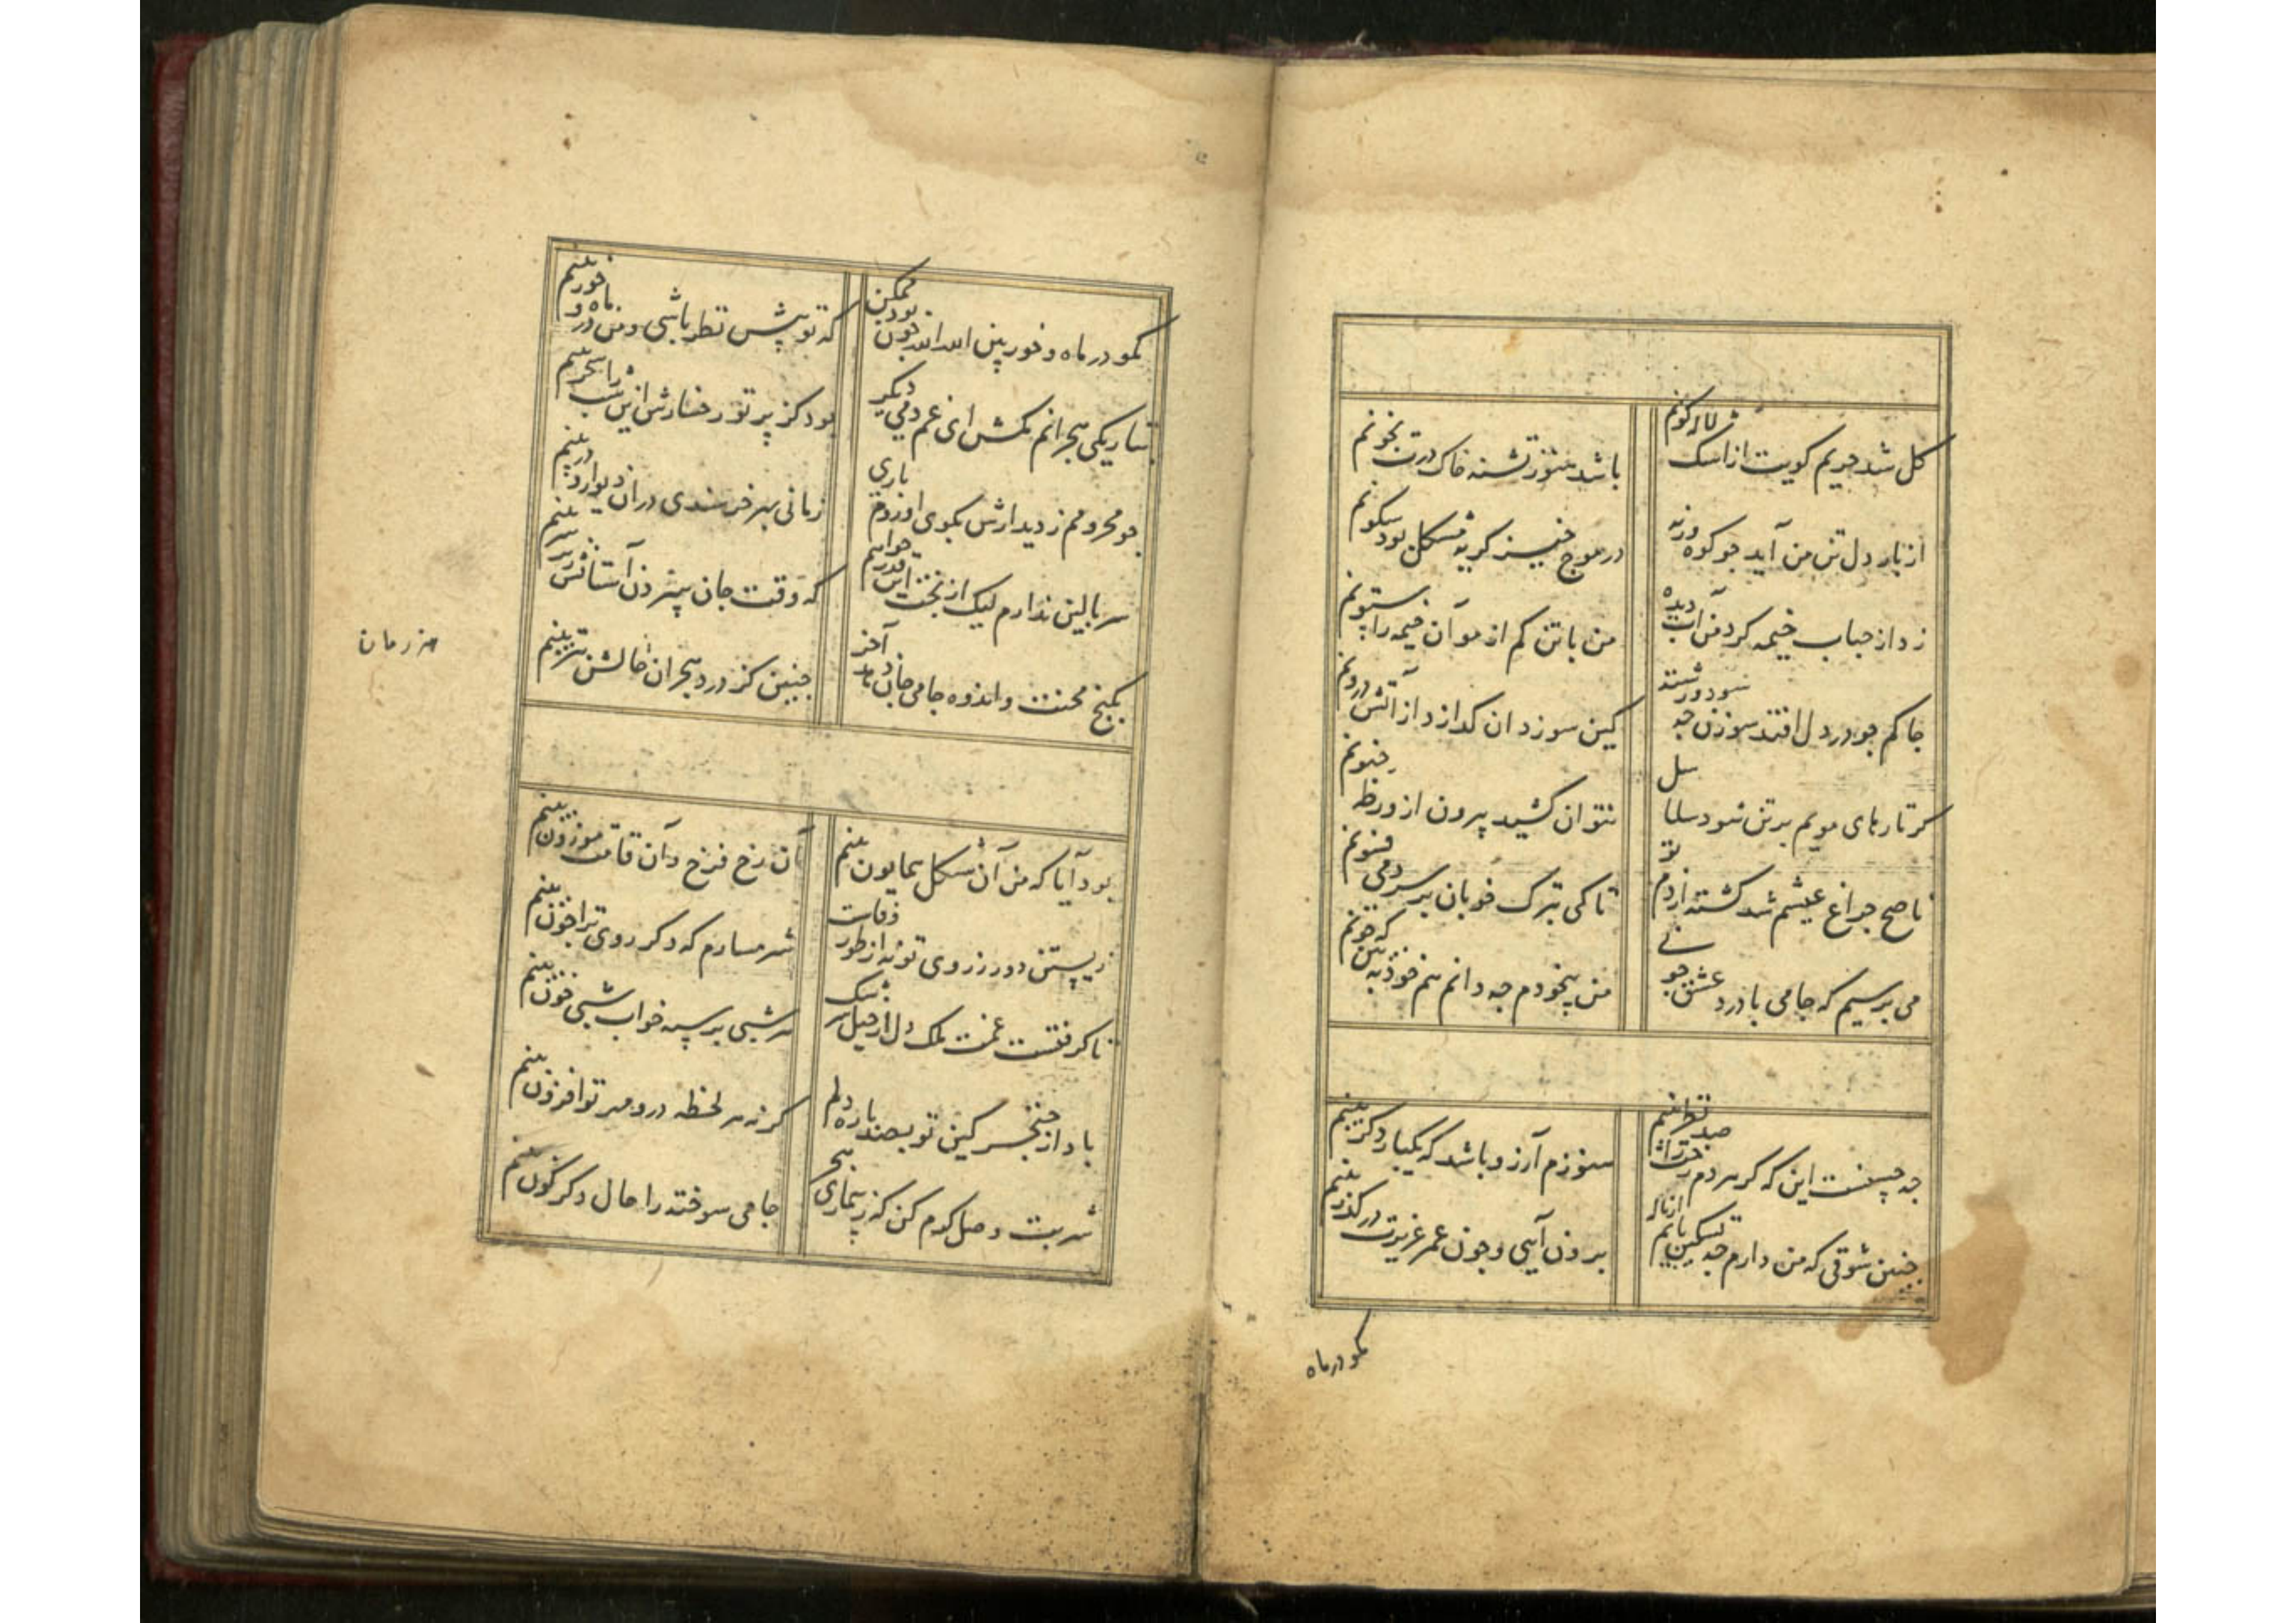 گل شد حریم کویت از اشک لاله کونم
باشد هنوز تشنه خاک درت بخونم
از بار دل تن من آید جو کوه ورنه
در موج خیز کریه مشکل بود سکونم
زد از حباب خیمه کرد من آب دیده
من با تن کم از مو آن خیمه را ستونم
جاکم جو در دل افتد سوزن جه سود و رشته
کین سوزد ان کدازد از آتش درونم
کر تارهای مویم بر تن شود سلاسل
نتوان کشید بیرون از ورطه جنونم
ناصح جراغ عیشم شد کشته از دم تو
تا کی بترک خوبان بر سر دمی فسونم
می برسیم که جامی با درد عشق جونی
من بیخودم جه دانم هم خود ببین که جونم
جه حسنست این که کر هر دم رخت را صد نظر بینم
هنوزم آرزو باشد که یکبار دکر بینم
جنین شوقی که من دارم جه تسکین یابم از ناکه
برون آیی و جون عمر عزیزت در کذر بینم
مکو در ماه
مکو در ماه و خور بین الله الله جون بود ممکن
که تو پیش نظر باشی و من در ماه و خور بینم
بتاریکی هجرانم مکش ای غم دمی دیکر
بود کز پرتو رخسارش این شب را سحر بینم
جو محرومم ز دیدارش بکوی او روم باری
زمانی بهر خرسندی در ان دیوار و در بینم
سر بالین ندارم لیک از بخت این قدر خواهم
که وقت جان سپردن آستانش زیر سر بینم
بکنج محنت و اندوه جامی جان دهد آخر
جنین کز درد هجران حالش بتر بینم
بود آیا که من آن شکل همایون بینم
آن رخ فرخ و آن قامت موزون بینم
زیستن دور ز روی تو نه از طور وفاست
شرمسارم که دکر روی ترا جون بینم
تا کرفتست غمت ملک دل از خیل سرشک
هر شبی بر سپه خواب شبیخون بینم
باد از خنجر کین تو بصد پاره دلم
کر نه هر لحظه درو مهر تو افزون بینم
شربت وصل کرم کن که ز بیماری هجر
جامی سوخته را حال دکرکون بینم